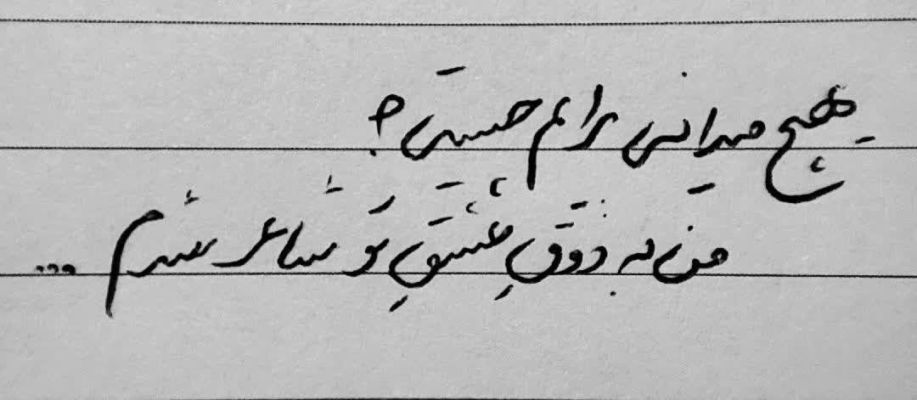 هیچ میدانی برایم چیستی؟
من به ذوقِ عشقِ تو شاعر شدم ...